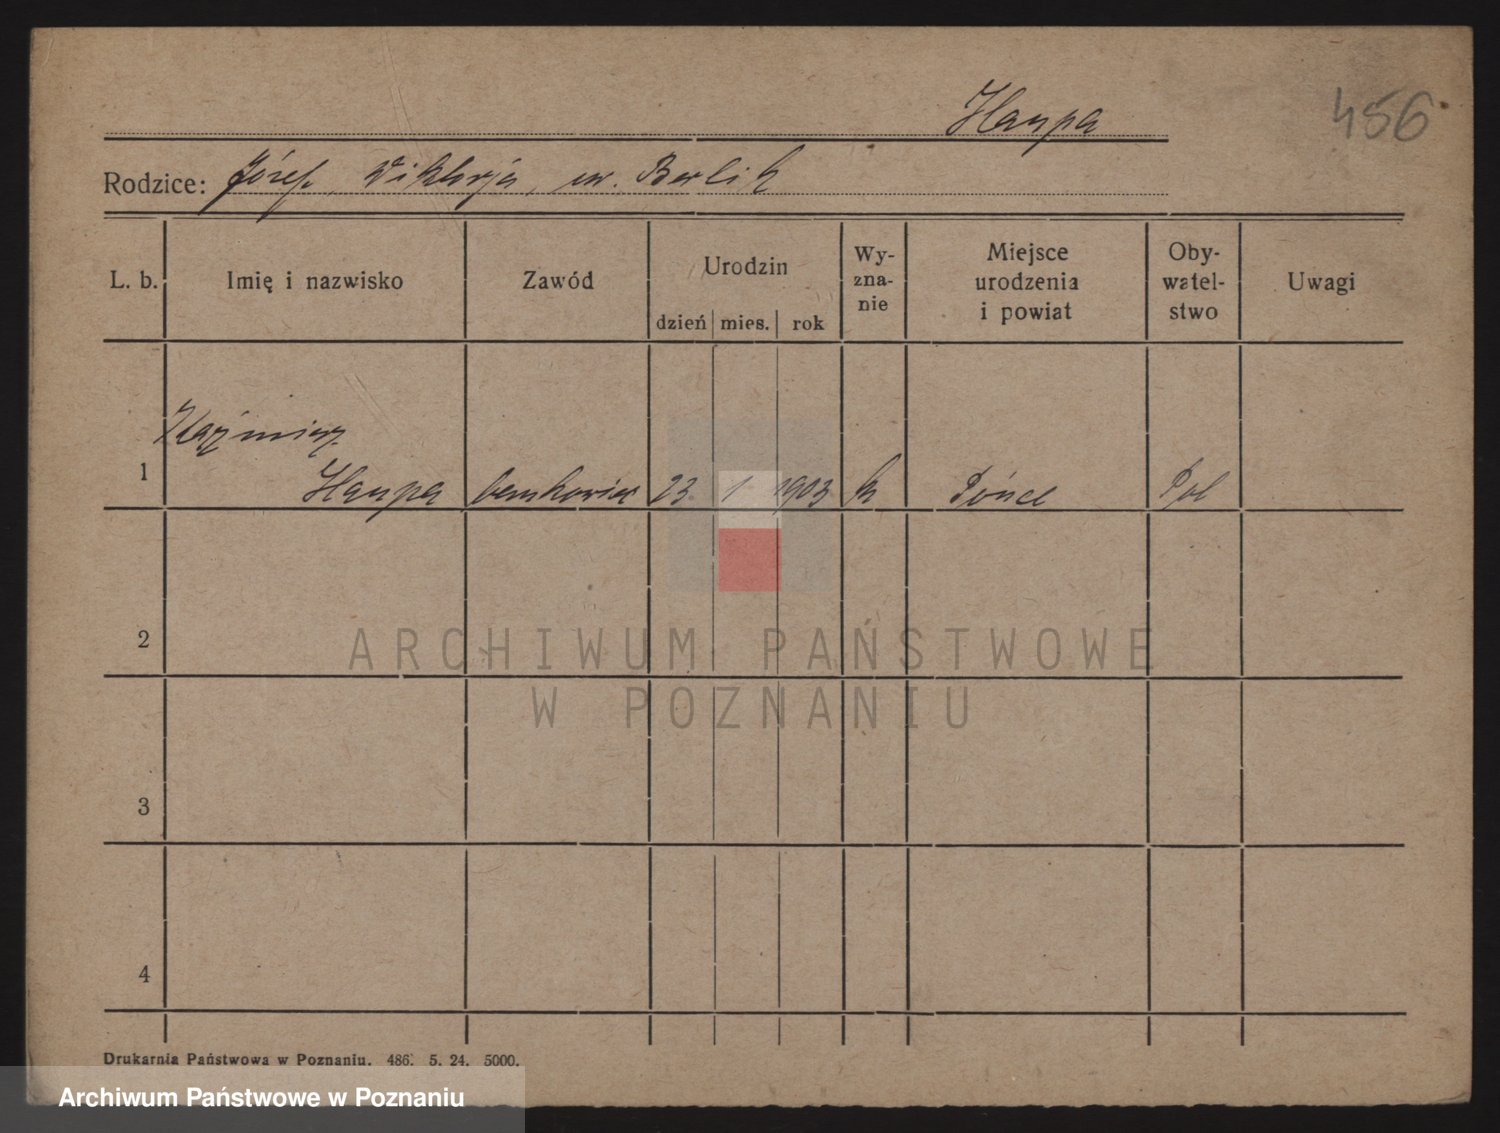 Haupa 456
Rodzice: Józef, Wiktorja, ur. Berlik
L. b. Imię i nazwisko Zawód Urodzin dzień mies. rok Wy-
zna-
nie Miejsce
urodzenia
i powiat Oby-
watel-
stwo Uwagi
Kaźmierz
1 Haupa 23. 1. 1903 k Pol
2
3
4
ARCHIWUM PAŃSTWOWE
W POZNANIU
Drukarnia Państwowa w Poznaniu. 486. 5. 24. 5000.
Archiwum Państwowe w Poznaniu